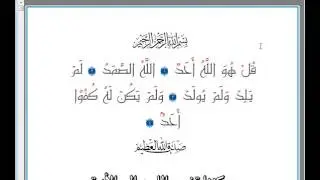 بسم الله الرحمن الرحيم
قُلْ هُوَ اللَّهُ أَحَدٌ ۝ اللَّهُ الصَّمَدُ ۝ لَمْ
يَلِدْ وَلَمْ يُولَدْ ۝ وَلَمْ يَكُن لَّهُ كُفُوًا
أَحَدٌ ۝
صدق الله العظيم